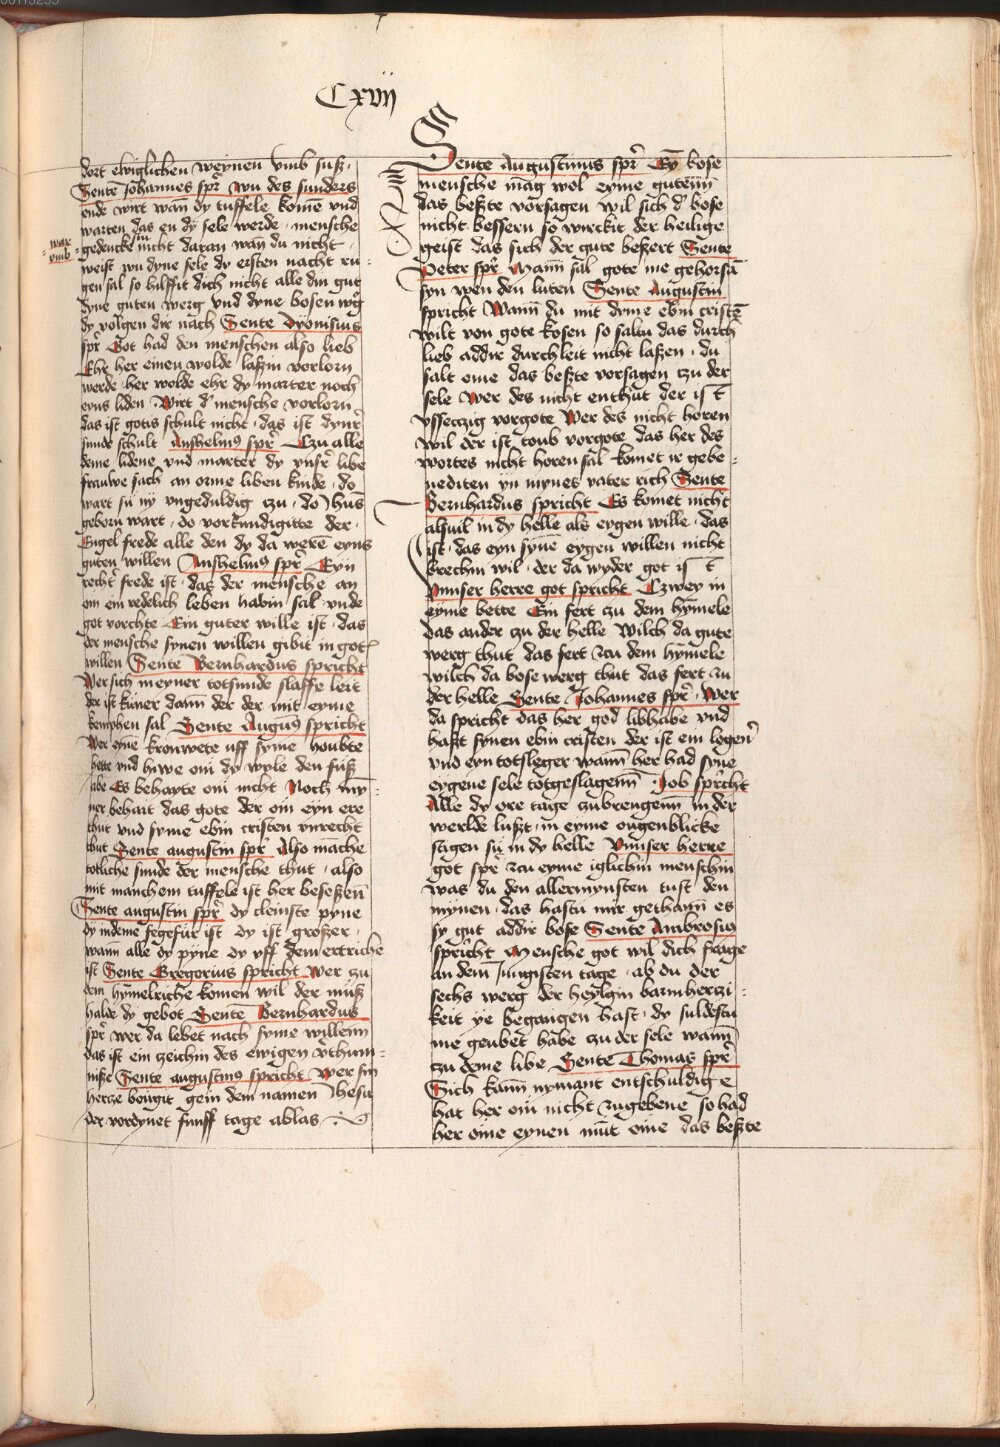 Cxvij
dort ewiglichen weynen vmb suß ·
Sente Johannes spr̄ wu des sunders
ende wirt wañ dy tuffele komē vnd
warten das en dy sele werde · mensche
gedencke nicht daran wañ du nicht ·
war
vmb
weist wu dyne sele dy ersten nacht ru =
gen sal so hilffit dich nicht alle din gut
dyne guten werg vnd dyne bosen wg̃
dy volgen dir nach Sente Dyonisius
spr̄ Got had den menschen also lieb
Ehr her einen wolde laßin vorlorn
werde her wolde ehr dy marter noch
eyns liden Wirt d' mensche vorlorn
das ist gotis schult nicht · das ist dynr̄
sunde schult Anshelm9 spr̄ Czu alle
deme lidene vnd marter dy vnsr̄ libe
frauwe sach an orme liben kinde · do
wart su ny vngeduldig czu · do Jhus̄
geborn wart · do vorkundigitte der ·
Engel frede alle den dy da werē eyns
guten willen Anshelm9 spr̄ Eyn
recht' frede ist · das der mensche an
om ein redelich leben habin sal vnde
got vorchte Ein guter wille ist · das
der mensche synen willen gibit in got
willen Sente Bernhardus spricht
Wer sich in eyner totsunde slaffe leit
der ist kuner dann der der mit eyme
kemphen sal Sente Augus̄ spricht
Wer eyme kronwete uff syme houbte
hette vnd hiwe om dy wyle den fuß
abe Es behayte om nicht Noch myn
ner behait das gote der om eyn ere
thut vnd syme ebin cristen vnrecht
thut Sente augustin spr̄ Also māche
totliche sunde der mensche thut · also
mit manchem tuffele ist her beseßen
Sente augustin spr̄ dy cleinste pyne
dy indeme fegefur ist dy ist großer ·
wann alle dy pyne dy vff dem ertriche
ist Sente Gregorius spricht Wer zu
dem hymelriche komen wil der muß
halde dy gebot Sente Bernhardus
spr̄ wer da lebet nach syme willenn
das ist ein zeichin des ewigen v'thum =
niße Sente augustin9 spricht Wer sin
hertze bougit gein dem namen Jhesu
der vordynet funff tage ablas
Sente Augustinus spr̄ Ey bose
mensche mag wol eyme gutenn
das beßte vorsagen wil sich d' bose
nicht bessern so wirckit der heilige
geist das sich der gute beßert Sente
Peter spr̄ Mann sal gote me gehorsā
syn wen den luten Sente Augustin
spricht Wann du mit dyme ebin cristē
wilt von gote kosen so saltu das durch
lieb addir durch leit nicht laßen · du
salt eme das beßte vorsagen czu der
sele Wer des nicht enthut der ist
vsseczig vor gote Wer des nicht horen
wil der ist toub vor gote das her des
wortes nicht horen sal komet ir gebe =
nediten yn mynes vater rich Sente
Bernhardus spricht Es komet nicht
alsuil in dy helle als eygen wille · das
ist · das eyn synē eygen willen nicht
brechin wil · der da wyder got ist
Vnnser herre got spricht Czwey in
eyme bette Ein fert zu dem hymele
das ander zu der helle Wilch da gute
werg thut das fert zu dem hymele
wilch da bose werg thut das fert zu
der helle Sente Johannes spr̄ · Wer
da spricht das her god libhabe vnd
haßt synen ebin cristen der ist ein logen'
vnd eyn totsleger wann her had syne
eygene sele totgeslagenn Job spricht
Alle dy ore tage zubrengenn in der
werlde lußt · in eyme ougenblicke
stigen su in dy helle Vnnser herre
got spr̄ zu eyme iglichin menschin
was du den allermynsten tust den
mynen · das hastu mir gethann es
sy gut addir bose Sente Ambrosius
spricht Mensche got wil dich frage
an dem Jungisten tage · ab du der
sechs werg der heylgin barmhertzi =
keit ye begangen hast · dy suldestu
me geubet habe zu der sele wann
zu deme libe Sente Thomas spr̄
Sich kann nymant entschuldige
hat her om nicht zugebene so had
her oine eynen mut eme das beßte